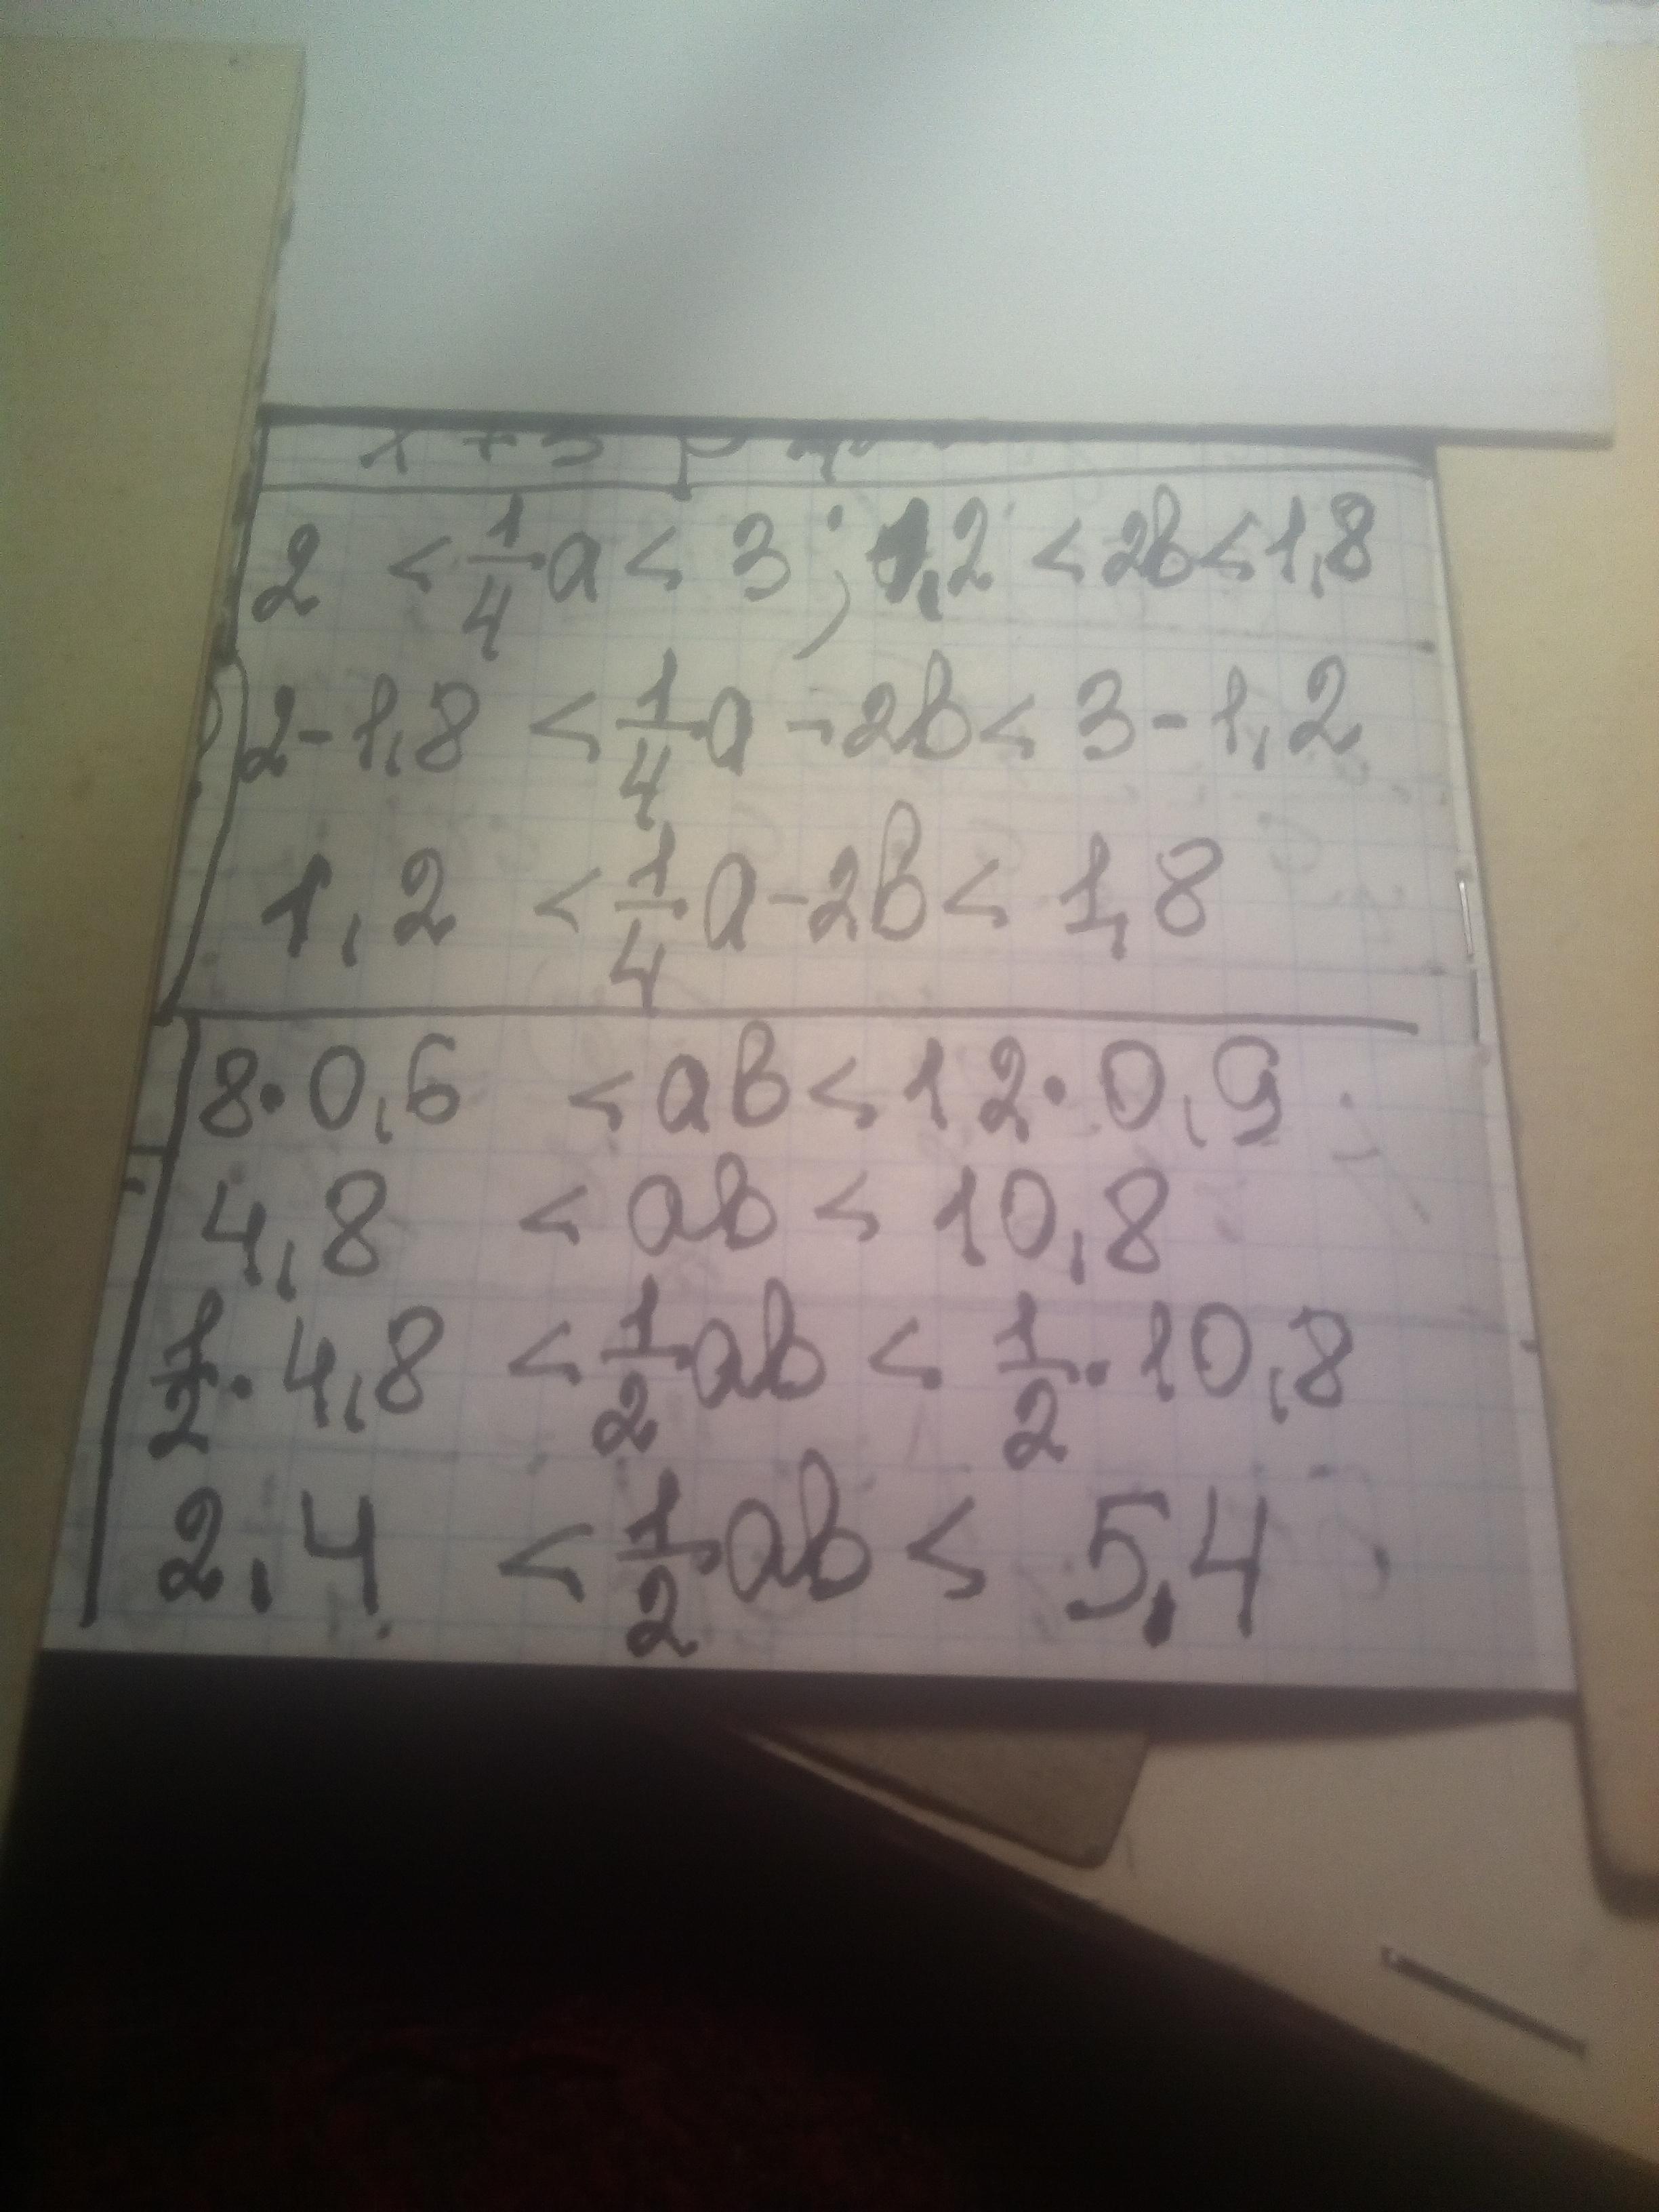 2 < 1/4 a < 3 ; 1,2 < 2b < 1,8
2 - 1,8 < 1/4 a - 2b < 3 - 1,2
1,2 < 1/4 a - 2b < 1,8
8 · 0,6 < ab < 12 · 0,9
4,8 < ab < 10,8
1/2 · 4,8 < 1/2 ab < 1/2 · 10,8
2,4 < 1/2 ab < 5,4